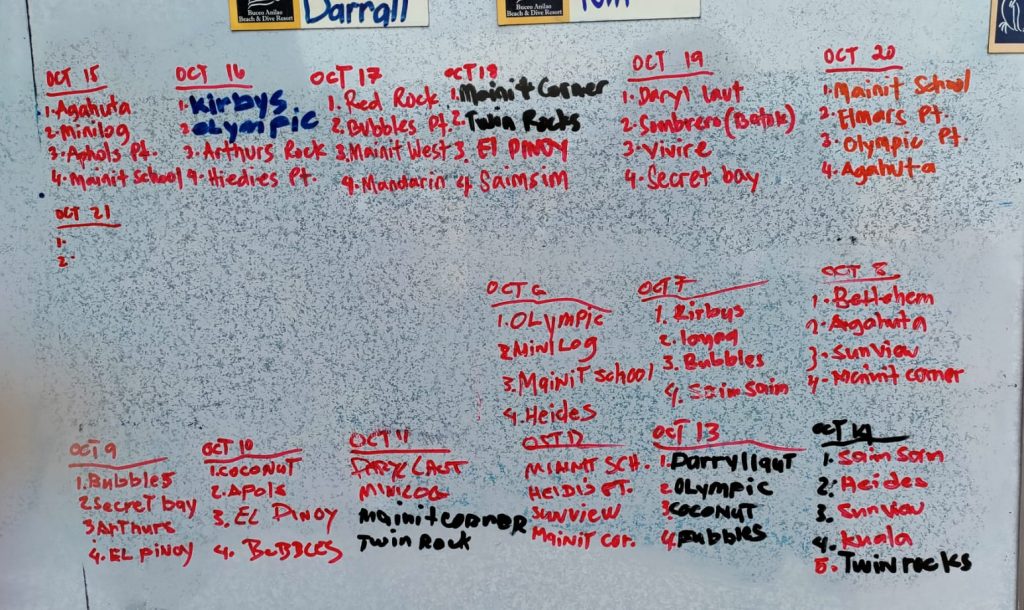 Darrall
Buceo Anilao
Beach & Dive Resort
Tom
Buceo Anilao
Beach & Dive Resort
OCT 15
1. Agahuta
2. Minilog
3. Aphols Pt.
4. Mainit School
OCT 16
1. Kirbys
2. OLYMPIC
3. Arthurs Rock
4. Hiedies Pt.
OCT 17
1. Red Rock
2. Bubbles Pt.
3. Mainit West
4. Mandarin
OCT 18
1. Mainit Corner
2. Twin Rocks
3. El PINOY
4. Saimsim
OCT 19
1. Daryl Laut
2. Sombrero (Batok)
3. Vivire
4. Secret bay
OCT 20
1. Mainit School
2. Elmars Pt.
3. Olympic Pt.
4. Agahuta
OCT 21
1.
2.
OCT 6
1. OLYMPIC
2. MINILOG
3. MAINIT SCHOOL
4. Heides
OCT 7
1. Kirbys
2.
3. Bubbles
4. Saim Saim
OCT 8
1. Bethlehem
2. Agahuta
3. Sunview
4. Mainit corner
OCT 9
1. Bubbles
2. Secret bay
3. Arthurs
4. EL PINOY
OCT 10
1. COCONUT
2. Apols
3. EL PINOY
4. BUBBLES
OCT 11
DARYL LAUT
MINILOG
MAINIT CORNER
TWIN ROCK
OCT 12
MAINIT SCH.
HEIDI'S PT.
SUNVIEW
MAINIT COR.
OCT 13
1. Darryl laut
2. OLYMPIC
3. COCONUT
4. Bubbles
OCT 14
1. Saim Saim
2. Heides
3. Sunview
4. Kuala
5. Twin rocks